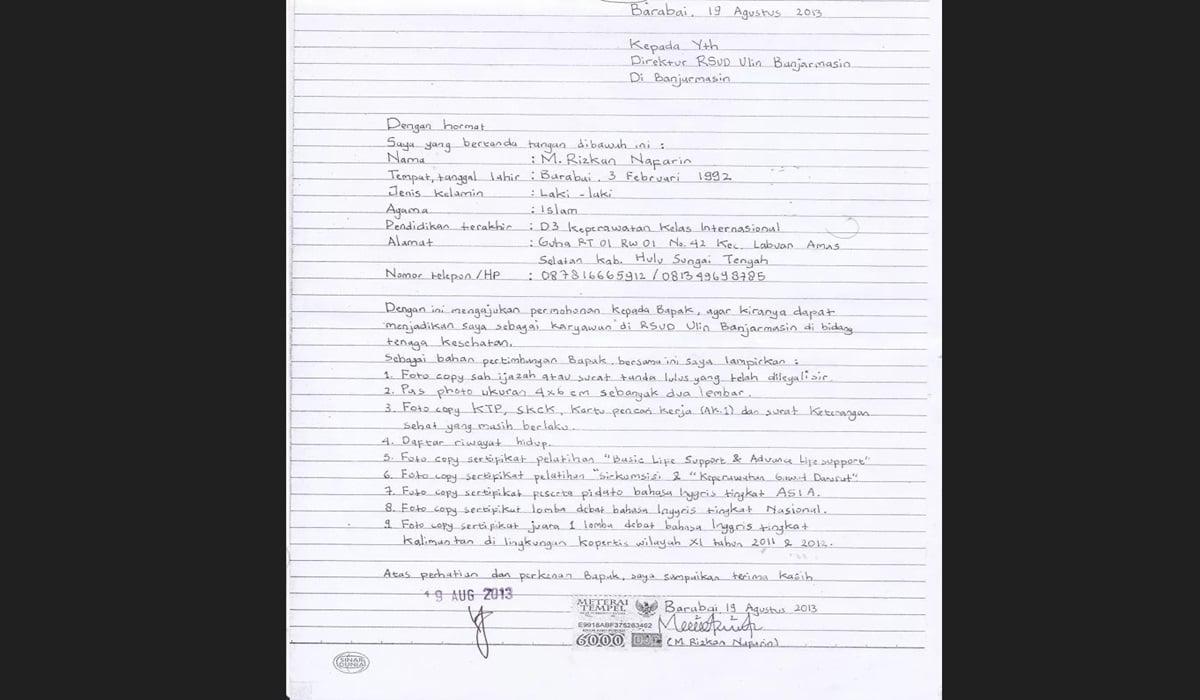 Barabai, 19 Agustus 2013
Kepada Yth
Direktur RSUD Ulin Banjarmasin
Di Banjarmasin
Dengan hormat
Saya yang bertanda tangan dibawah ini :
Nama : M. Rizkan Naparin
Tempat, tanggal lahir : Barabai, 3 Februari 1992
Jenis Kelamin : Laki-laki
Agama : Islam
Pendidikan terakhir : D3 Keperawatan Kelas Internasional
Alamat : Guha RT 01 RW 01 No. 42 Kec. Labuan Amas
Selatan Kab. Hulu Sungai Tengah
Nomor telepon/HP : 087816665912 / 081349698785
Dengan ini mengajukan permohonan kepada Bapak, agar kiranya dapat
menjadikan saya sebagai karyawan di RSUD Ulin Banjarmasin di bidang
tenaga kesehatan.
Sebagai bahan pertimbangan Bapak, bersama ini saya lampirkan :
1. Foto copy sah ijazah atau surat tanda lulus yang telah dilegalisir.
2. Pas photo ukuran 4x6 cm sebanyak dua lembar.
3. Foto copy KTP, SKCK, Kartu pencari kerja (AK.1) dan surat Keterangan
sehat yang masih berlaku.
4. Daftar riwayat hidup.
5. Foto copy sertifikat pelatihan "Basic Life Support & Advance Life support"
6. Foto copy sertifikat pelatihan "Sirkumsisi & "Keperawatan Gawat Darurat"
7. Foto copy sertifikat peserta pidato bahasa Inggris tingkat ASIA.
8. Foto copy sertifikat lomba debat bahasa Inggris tingkat Nasional.
9. Foto copy sertifikat juara 1 lomba debat bahasa Inggris tingkat
Kalimantan di lingkungan Kopertis wilayah XI tahun 2011 & 2012.
Atas perhatian dan perkenan Bapak, saya sampaikan terima kasih
19 AUG 2013
METERAI
TEMPEL
Barabai, 19 Agustus 2013
6000
(M. Rizkan Naparin)
SINAR
DUNIA